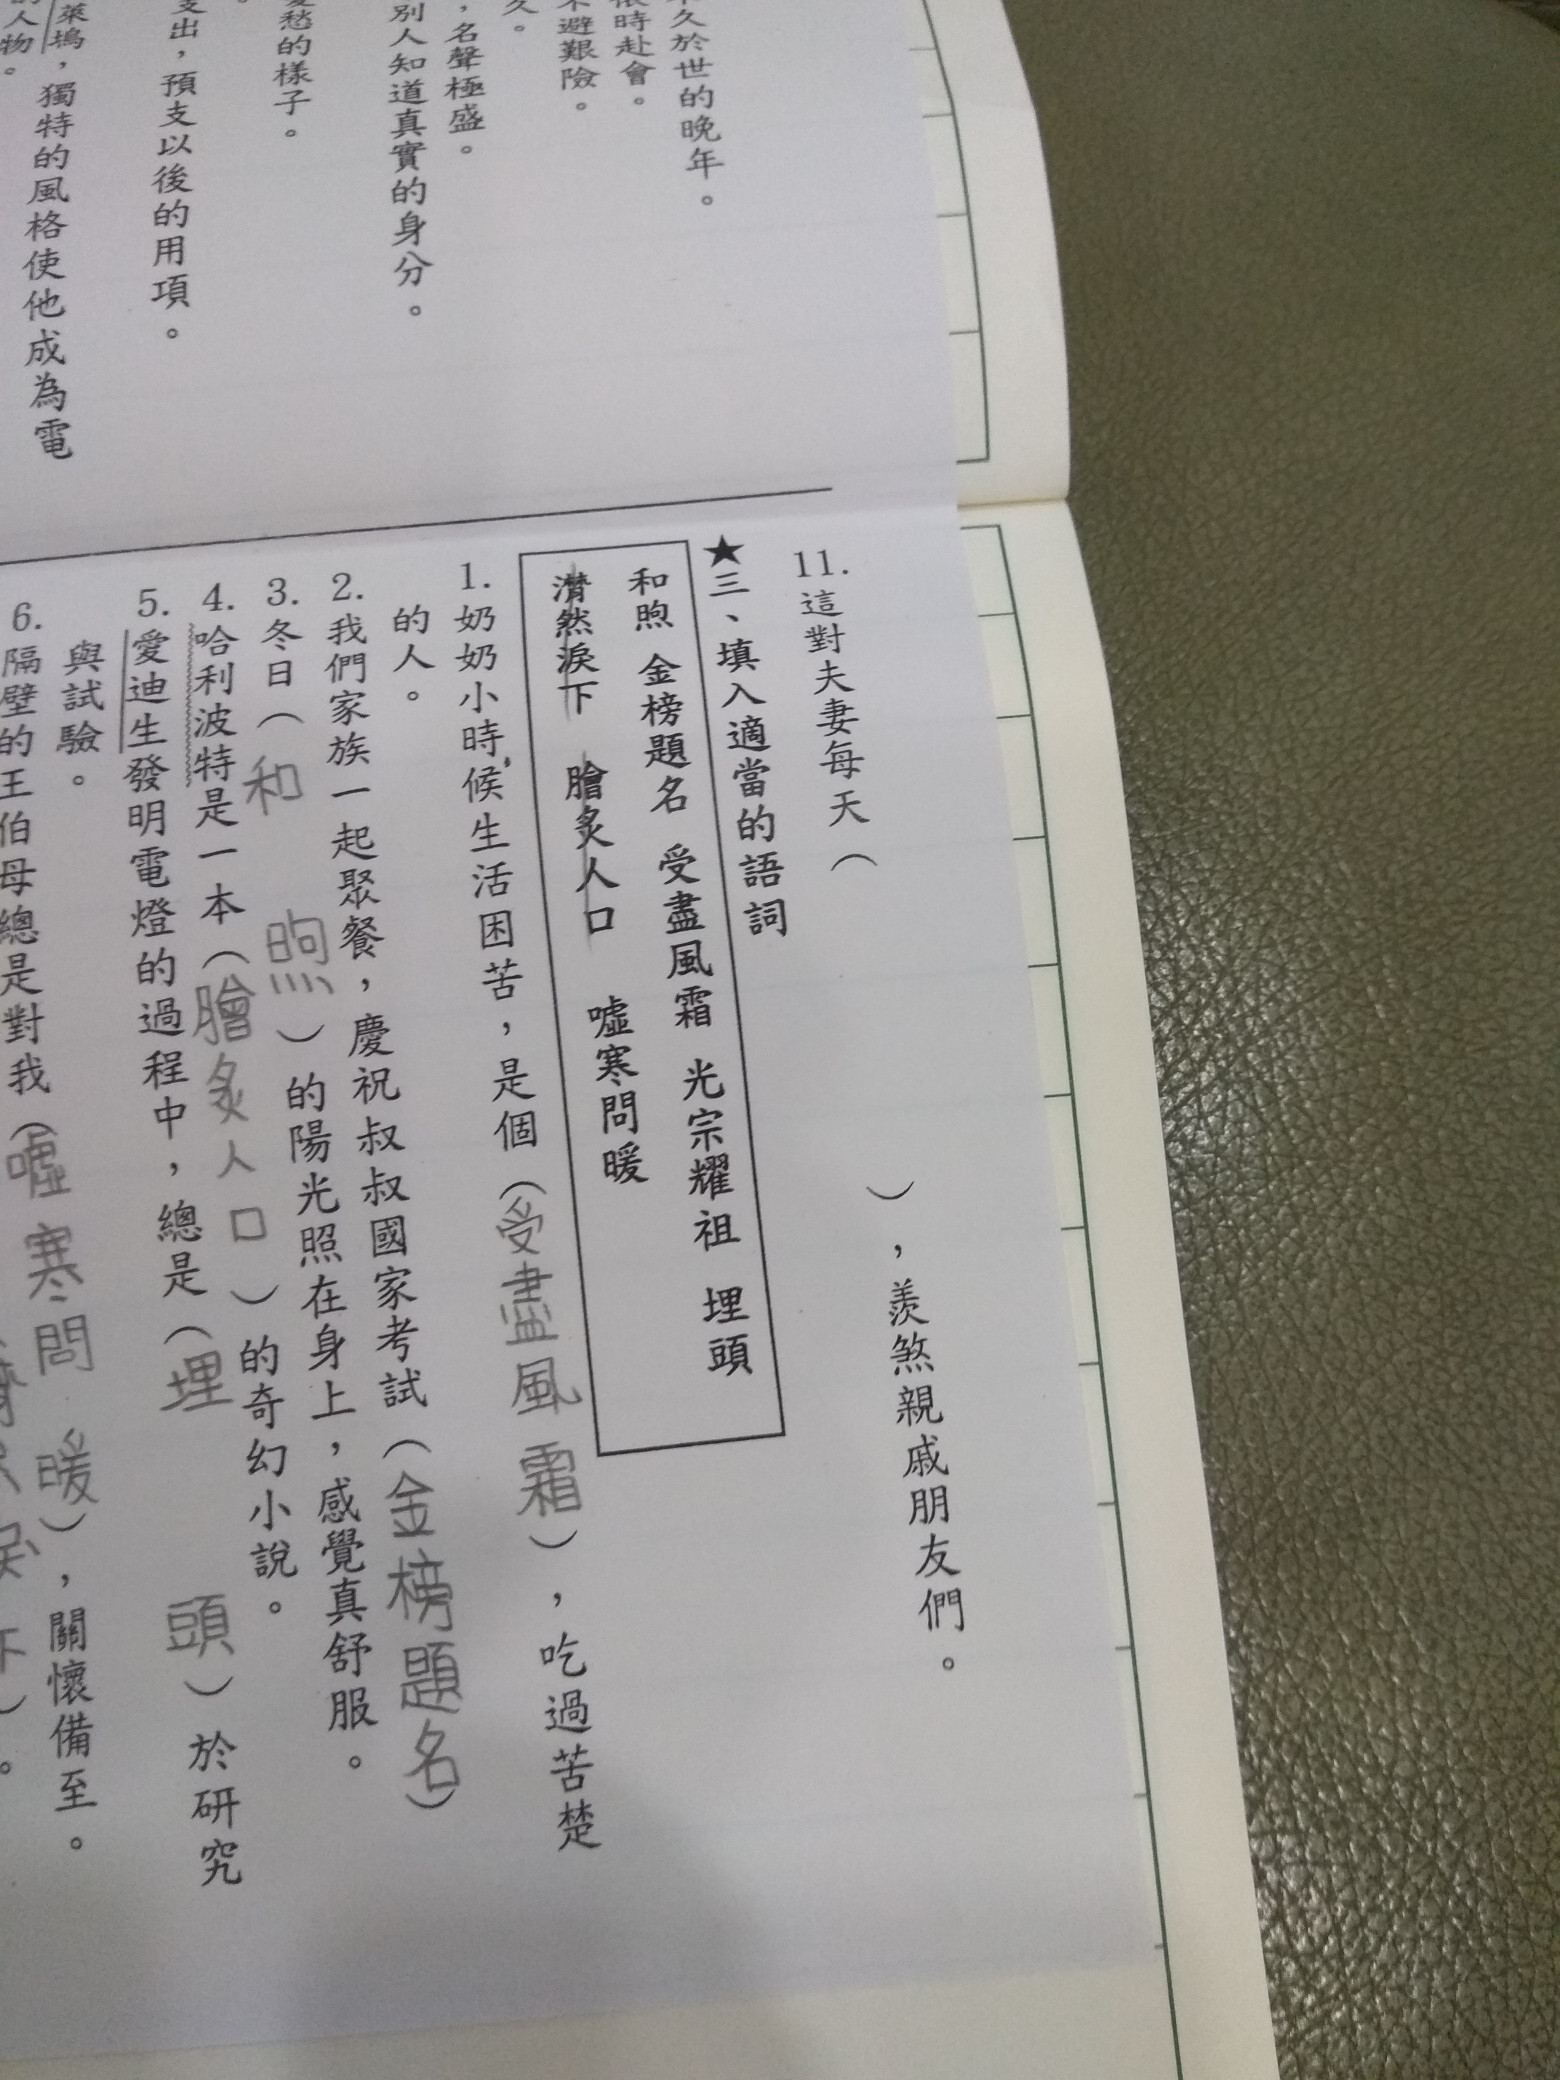 不久於世的晚年。
依時赴會。
不避艱險。
久。
，名聲極盛。
別人知道真實的身分。
憂愁的樣子。
支出，預支以後的用項。
萊塢，獨特的風格使他成為電
人物。
11.這對夫妻每天（　　），羨煞親戚朋友們。
★三、填入適當的語詞
和煦 金榜題名 受盡風霜 光宗耀祖 埋頭
潸然淚下 膾炙人口 噓寒問暖
1.奶奶小時候生活困苦，是個（受盡風霜），吃過苦楚
的人。
2.我們家族一起聚餐，慶祝叔叔國家考試（金榜題名）
3.冬日（和煦）的陽光照在身上，感覺真舒服。
4.哈利波特是一本（膾炙人口）的奇幻小說。
5.愛迪生發明電燈的過程中，總是（埋頭）於研究
與試驗。
6.隔壁的王伯母總是對我（噓寒問暖），關懷備至。
下）。